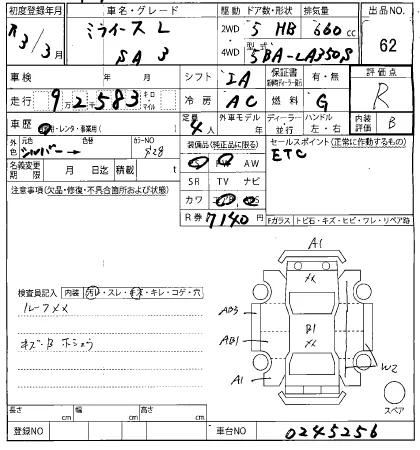 初度登録年月 車名・グレード 駆動 ドア数・形状 排気量 出品NO.
R3/3月 ミライース L 2WD 5 HB 660cc 62
SA3 4WD 型式 5BA-LA350S
車検 年 月 シフト IA 保証書 有・無 評価点
走行 92583 キロ マイル 冷房 AC 燃料 G R
車歴 自家・レンタ・事業用( ) 定員 4人 外車モデル 年 ディーラー 並行 ハンドル 左・右 内装評価 B
外色 元色 シルバー→ 色替 カラーNO S28 装備品(純正品に限る) セールスポイント(正常に作動するもの)
PS PW AW ETC
名義変更期限 月 日迄 積載 t SR TV ナビ
注意事項(欠品・修復・不具合箇所および状態) カワ エアB ABS
R券 7140円
Fガラス トビ石・キズ・ヒビ・ワレ・リペア跡
A1
検査員記入 内装 汚レ・スレ・キズ・キレ・コゲ・穴
ルーフメメ
キズ・B ホショウ
メメ
AB3
B1
AB1
メメ
W2
A1
スペア
長さ cm 幅 cm 高さ cm
登録NO 車台NO 0245256